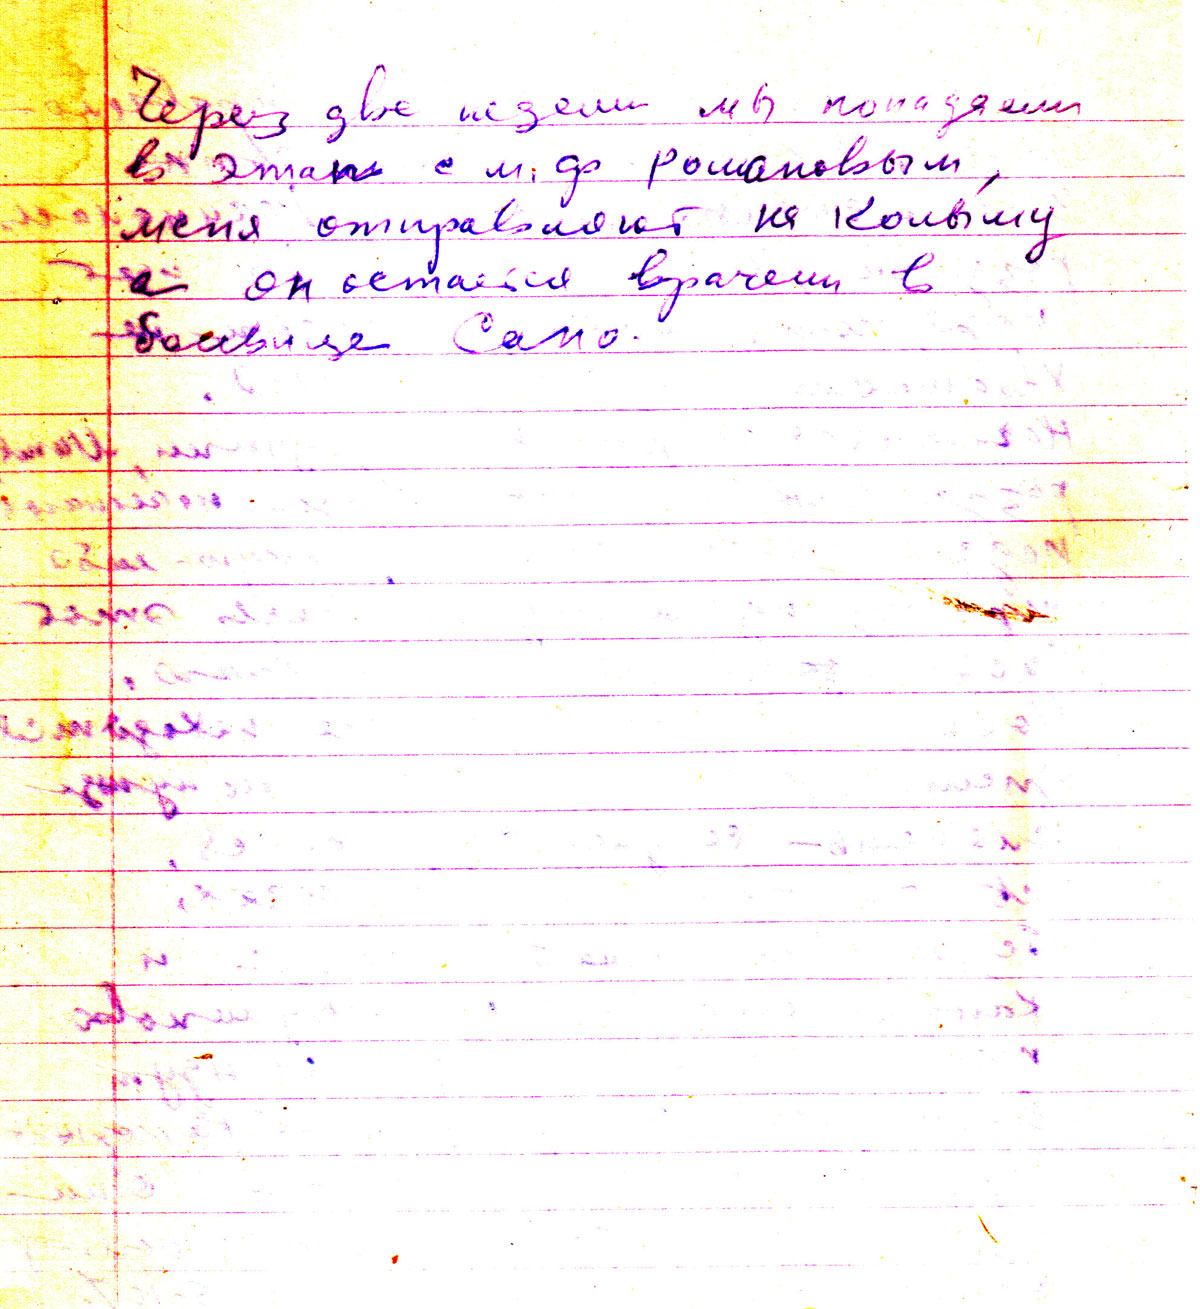 Через две недели мы попадаем
в этап с м. ф Романовым,
меня отправляют на Колыму
а он остается врачем в
Сапо.